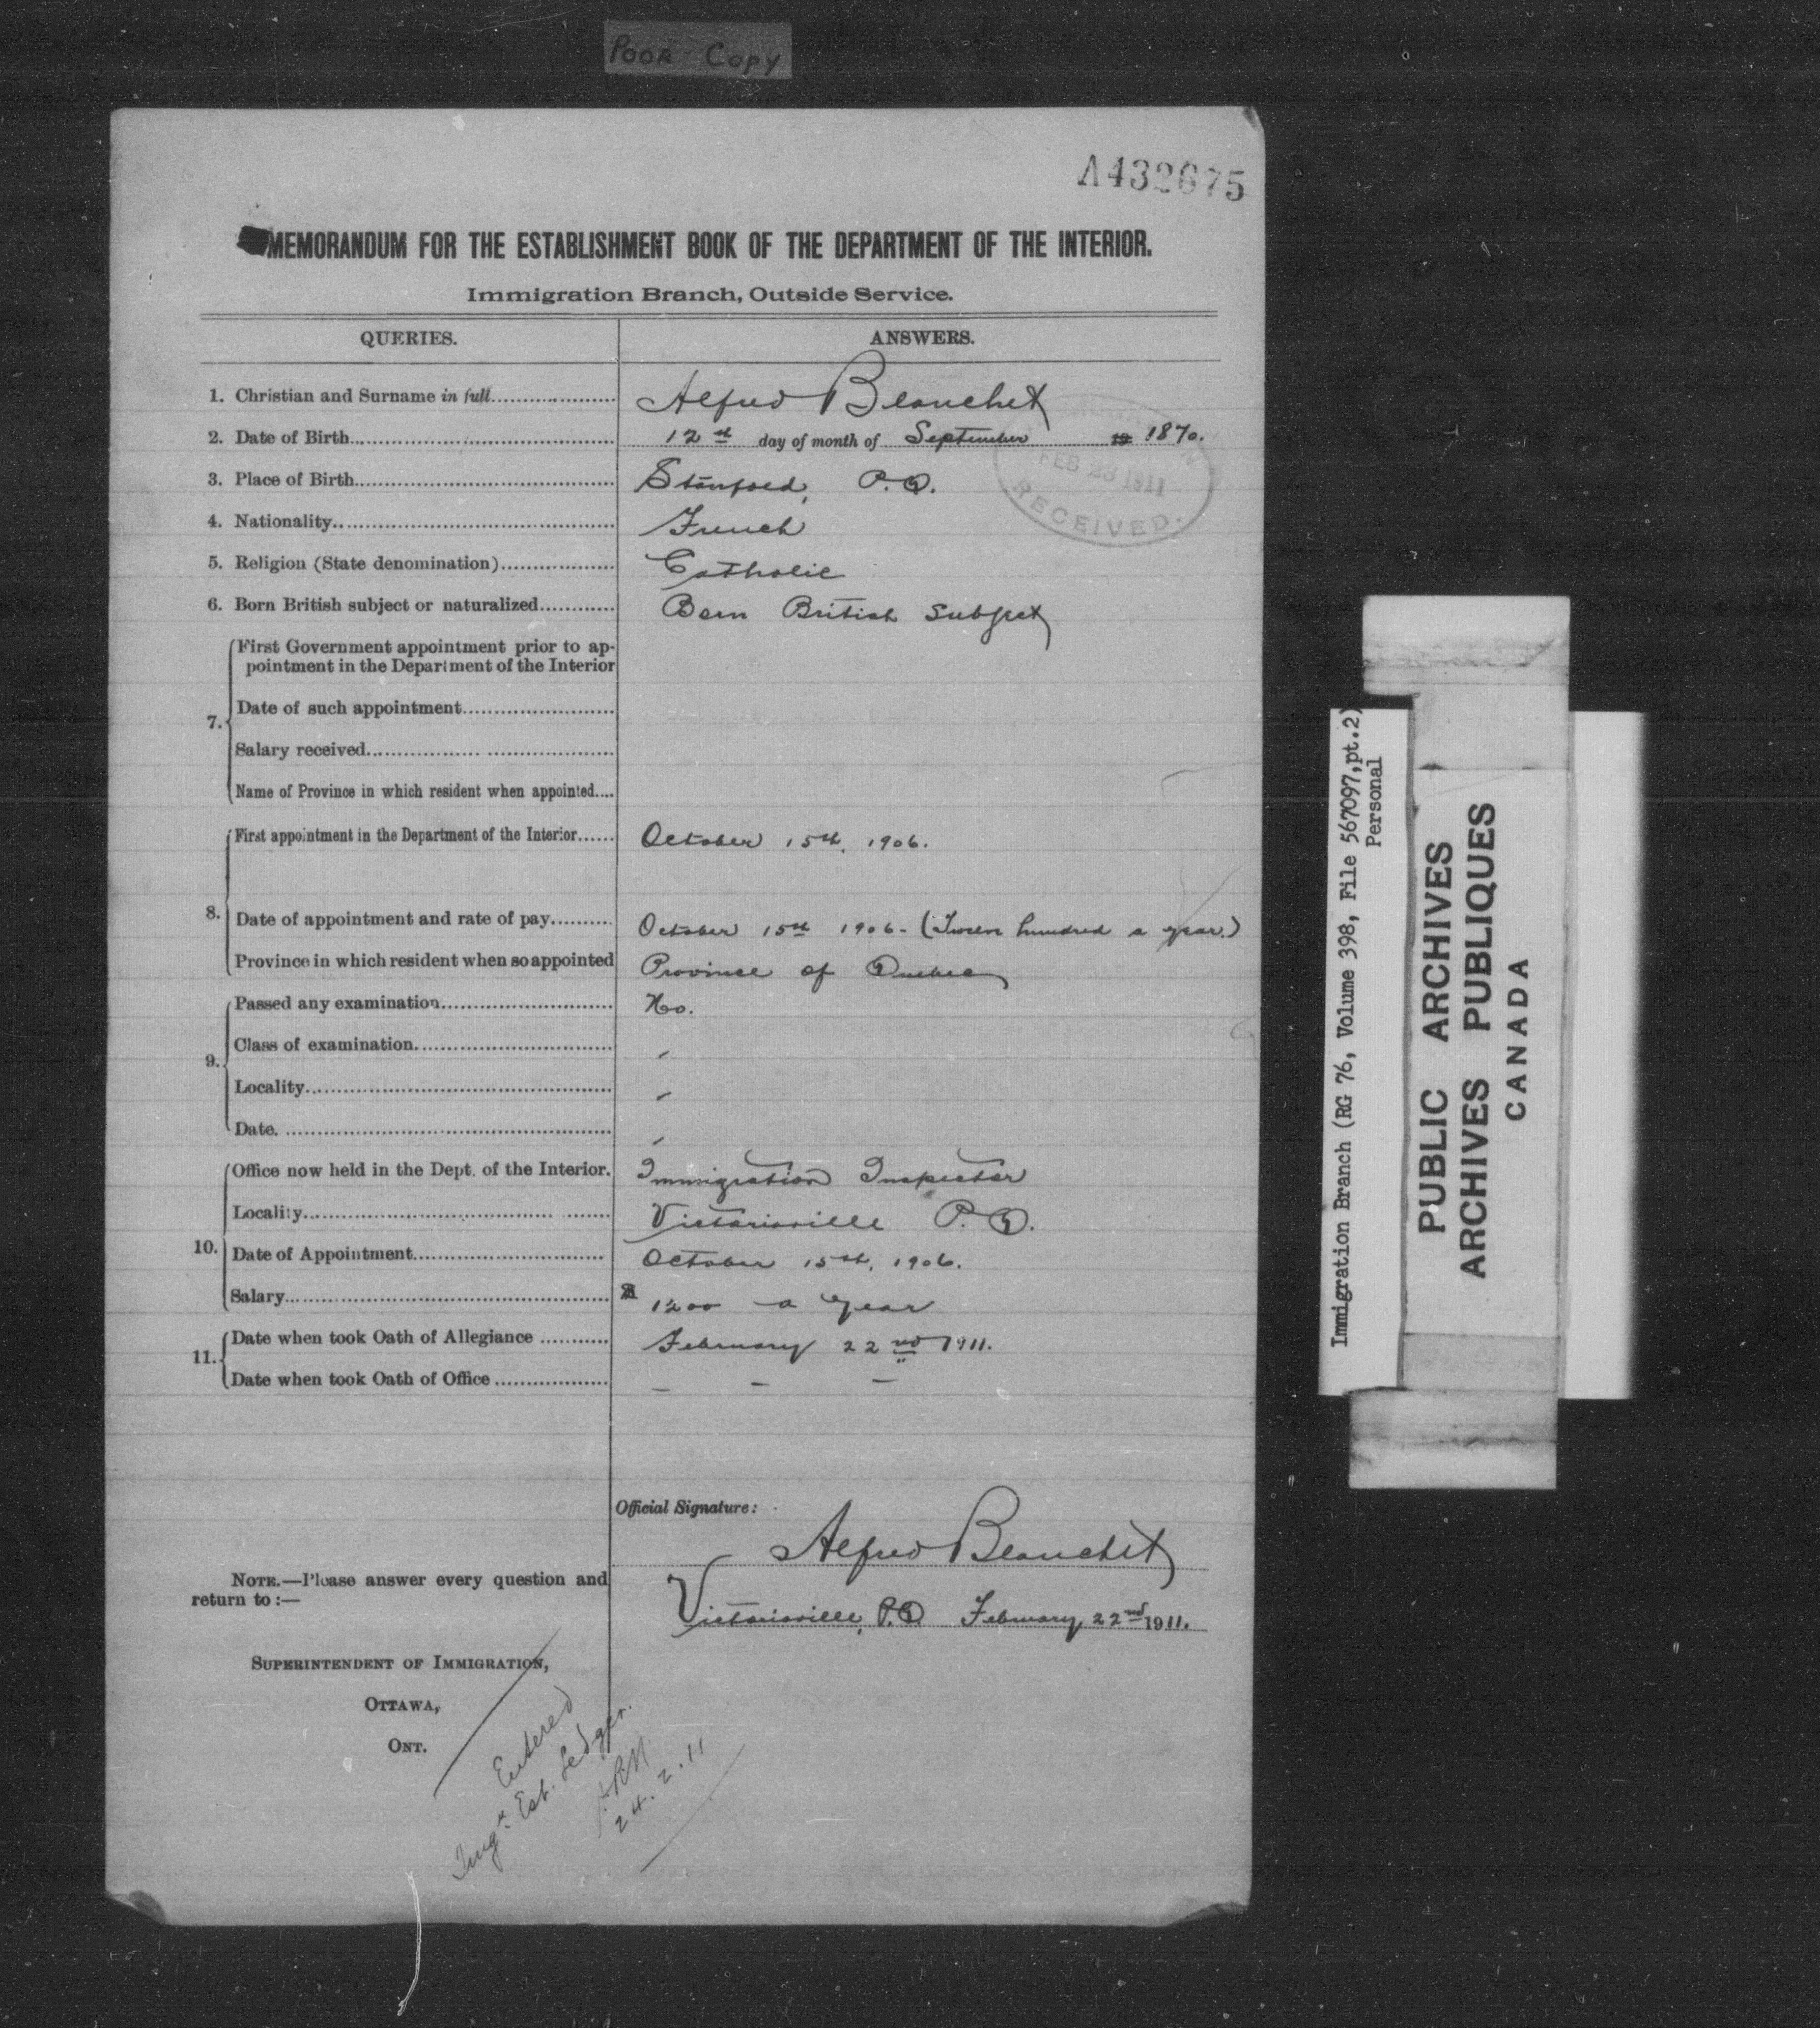 POOR COPY
A432675
MEMORANDUM FOR THE ESTABLISHMENT BOOK OF THE DEPARTMENT OF THE INTERIOR.
Immigration Branch, Outside Service.
QUERIES. ANSWERS.
1. Christian and Surname in full Alfred Blanchet
2. Date of Birth 12th day of month of September 19 1870.
3. Place of Birth Stanfold, P.Q.
FEB 23 1911
RECEIVED.
4. Nationality French
5. Religion (State denomination) Catholic
6. Born British subject or naturalized Born British Subject
7. First Government appointment prior to ap-
pointment in the Department of the Interior
Date of such appointment
Salary received
Name of Province in which resident when appointed
8. First appointment in the Department of the Interior October 15th, 1906.
Date of appointment and rate of pay October 15th 1906 - (Twelve hundred a year.)
Province in which resident when so appointed Province of Quebec
9. Passed any examination No.
Class of examination -
Locality -
Date. -
10. Office now held in the Dept. of the Interior. Immigration Inspector
Locality Victoriaville P.Q.
Date of Appointment October 15th, 1906.
Salary 1200 a year
11. Date when took Oath of Allegiance February 22nd 1911.
Date when took Oath of Office - - -
Official Signature:
Alfred Blanchet
Victoriaville, P.Q. February 22nd 1911.
NOTE.—Please answer every question and
return to:—
SUPERINTENDENT OF IMMIGRATION,
OTTAWA,
ONT.
Entered
Imgn. Est. Ledger.
24.2.11
Immigration Branch (RG 76, Volume 398, File 567097,pt.2)
Personal
PUBLIC ARCHIVES
ARCHIVES PUBLIQUES
CANADA